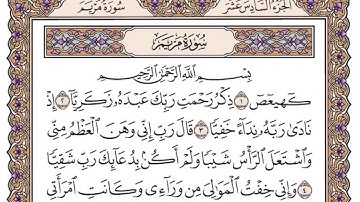 سُورَةُ مَرْيَمَ
الجُزْءُ السَّادِسَ عَشَرَ
سُورَةُ مَرْيَمَ
بِسْمِ اللَّهِ الرَّحْمَٰنِ الرَّحِيمِ
كٓهيعٓصٓ ١ ذِكْرُ رَحْمَتِ رَبِّكَ عَبْدَهُۥ زَكَرِيَّآ ٢ إِذْ
نَادَىٰ رَبَّهُۥ نِدَآءً خَفِيًّا ٣ قَالَ رَبِّ إِنِّي وَهَنَ ٱلْعَظْمُ مِنِّي
وَٱشْتَعَلَ ٱلرَّأْسُ شَيْبًا وَلَمْ أَكُنۢ بِدُعَآئِكَ رَبِّ شَقِيًّا
٤ وَإِنِّي خِفْتُ ٱلْمَوَٰلِيَ مِن وَرَآءِي وَكَانَتِ ٱمْرَأَتِي